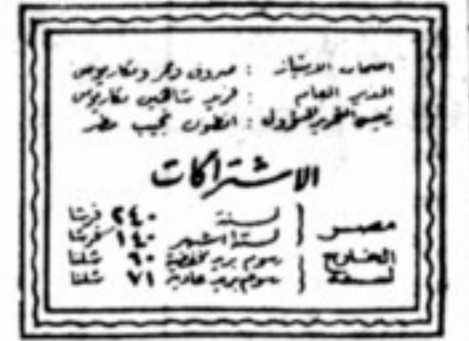 اصحاب الامتياز : صروف ونمر ومكاريوس
المدير العام : فريد شاهين مكاريوس
رئيس التحرير المسؤول : انطون نجيب مطر
الاشتراكات
مصر ( لسنة ٢٤٠ قرشا
( لستة اشهر ١٤٠ قرشا
الخارج ( رسوم بريد مخفضة ٦٠ شلنا
لسنة ( رسوم بريد عادية ٧١ شلنا